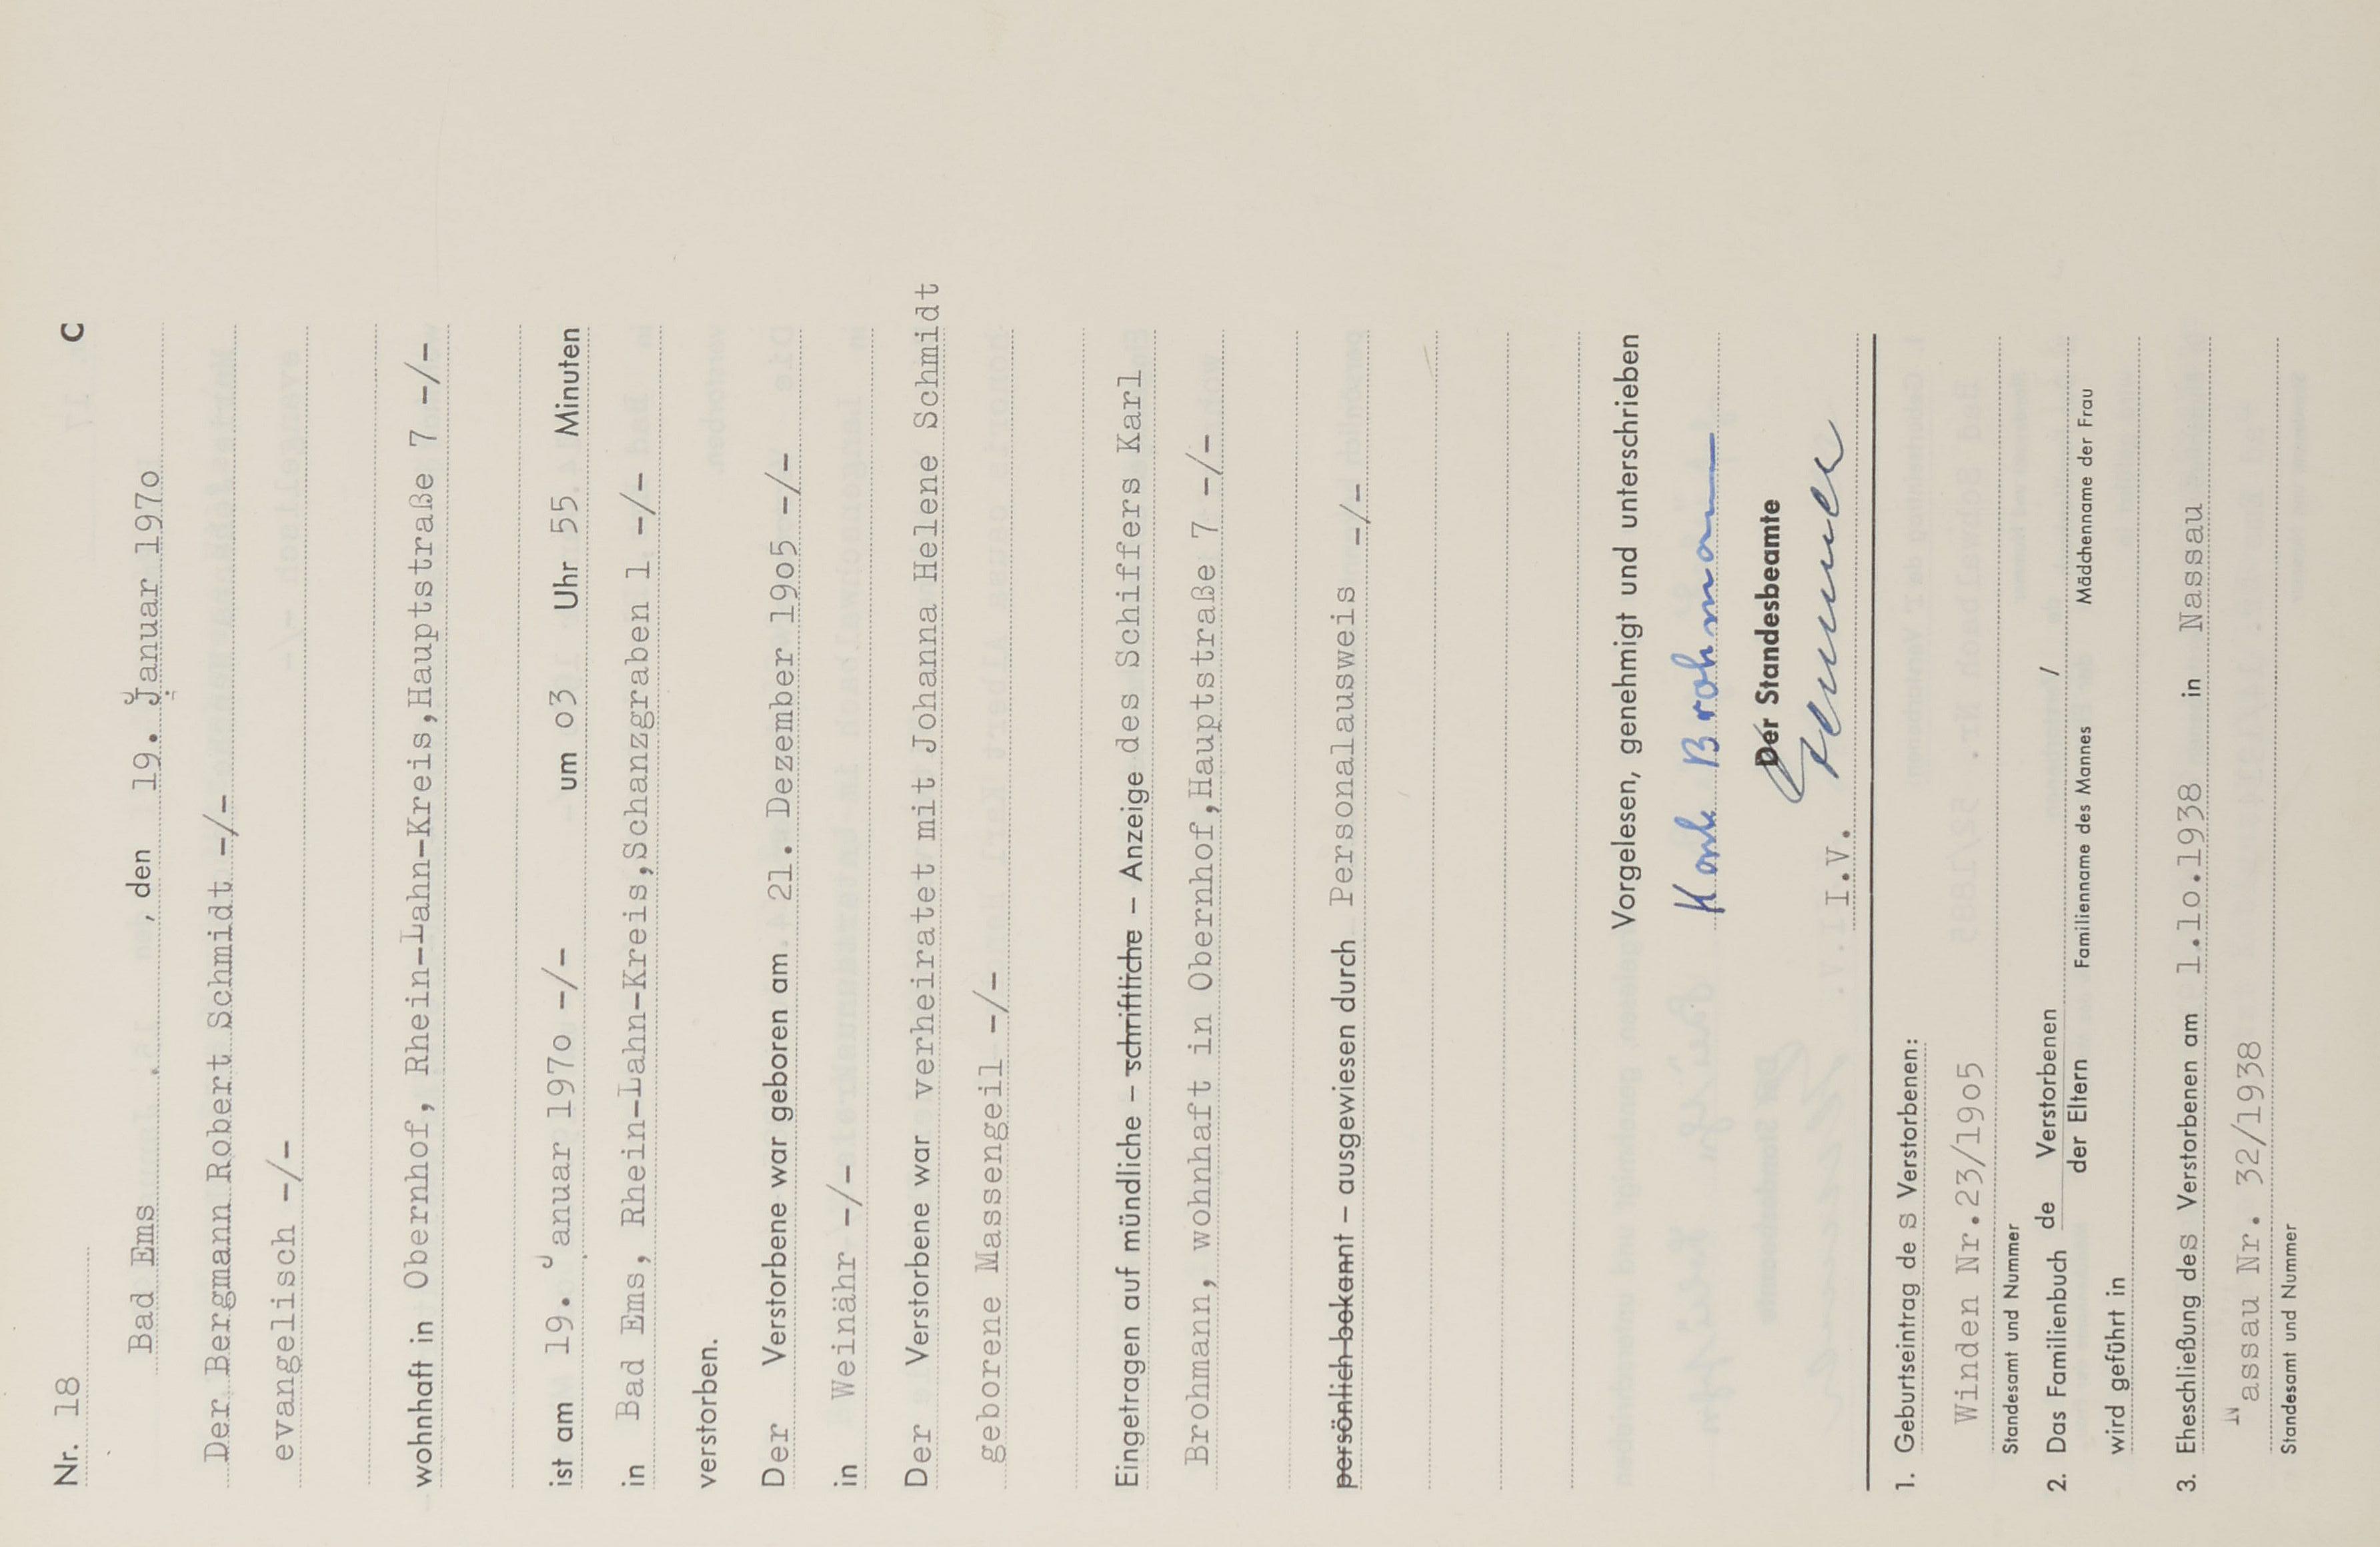 Nr. 18 C
Bad Ems , den 19. Januar 197o
Der Bergmann Robert Schmidt -/-
evangelisch -/-
wohnhaft in Obernhof, Rhein-Lahn-Kreis,Hauptstraße 7 -/-
ist am 19. Januar 197o -/- um o3 Uhr 55 Minuten
in Bad Ems, Rhein-Lahn-Kreis,Schanzgraben 1 -/-
verstorben.
Der Verstorbene war geboren am 21. Dezember 19o5 -/-
in Weinähr -/-
Der Verstorbene war verheiratet mit Johanna Helene Schmidt
geborene Massengeil -/-
Eingetragen auf mündliche – schriftliche – Anzeige des Schiffers Karl
Brohmann, wohnhaft in Obernhof,Hauptstraße 7 -/-
persönlich bekannt – ausgewiesen durch Personalausweis -/-
Vorgelesen, genehmigt und unterschrieben
Karl Brohmann
Der Standesbeamte
I.V.
1. Geburtseintrag de s Verstorbenen:
Winden Nr.23/19o5
Standesamt und Nummer
2. Das Familienbuch de Verstorbenen /
der Eltern Familienname des Mannes Mädchenname der Frau
wird geführt in
3. Eheschließung des Verstorbenen am 1.1o.1938 in Nassau
Nassau Nr. 32/1938
Standesamt und Nummer